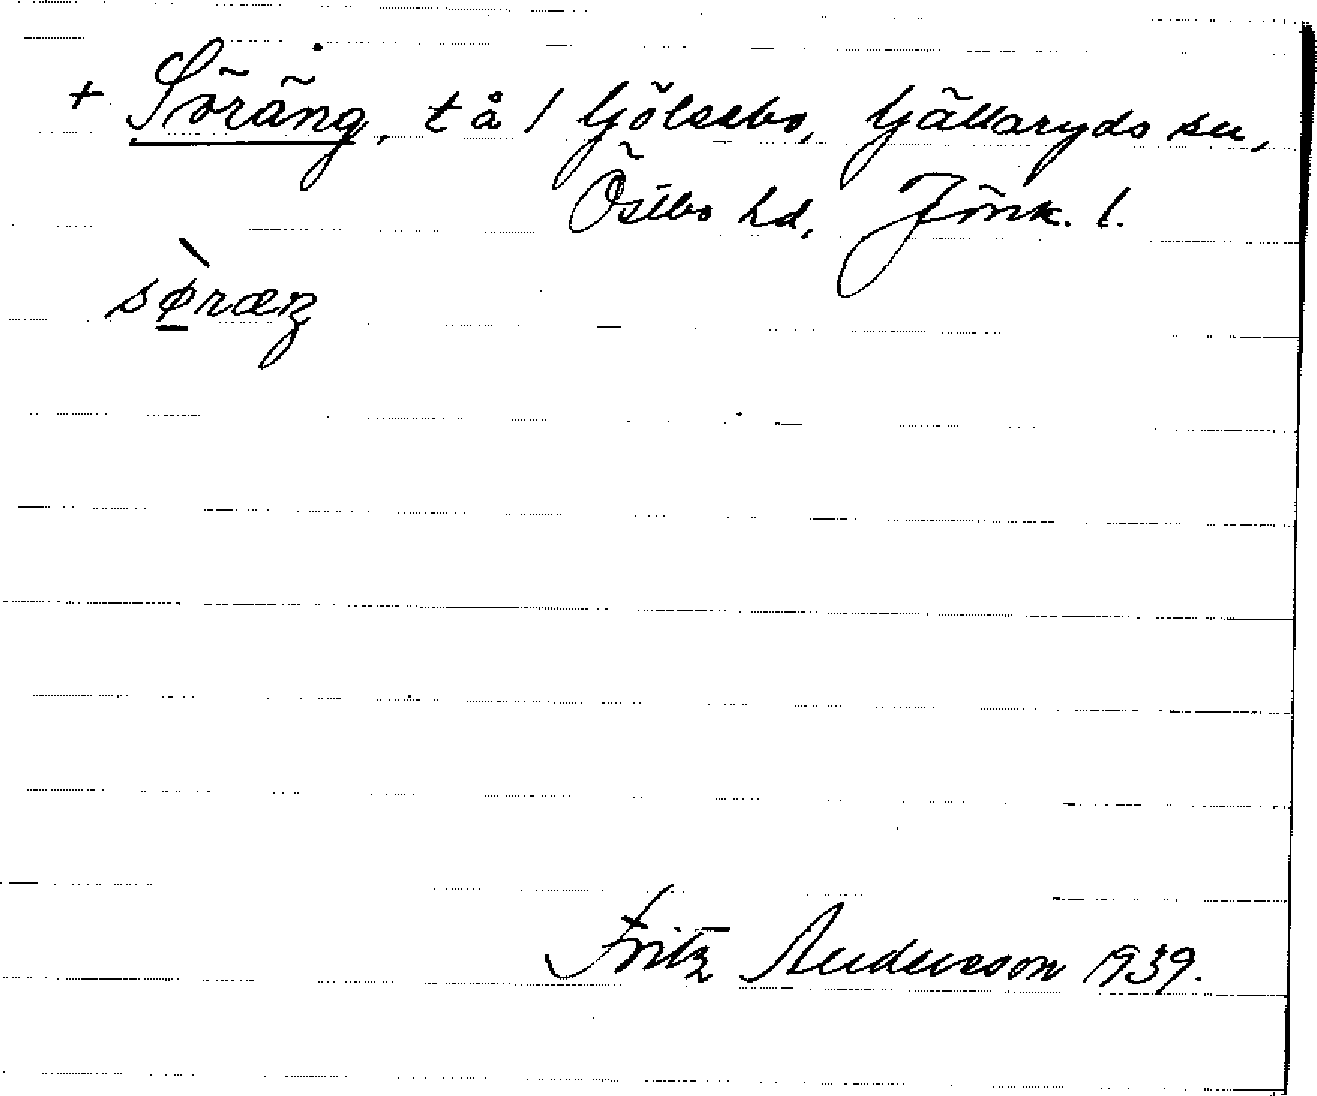 + Söräng, t å / Gjölsebo, Gällaryds sn,
Östbo hd, Jönk. l.
søræŋ
Fritz Andersson 1939.